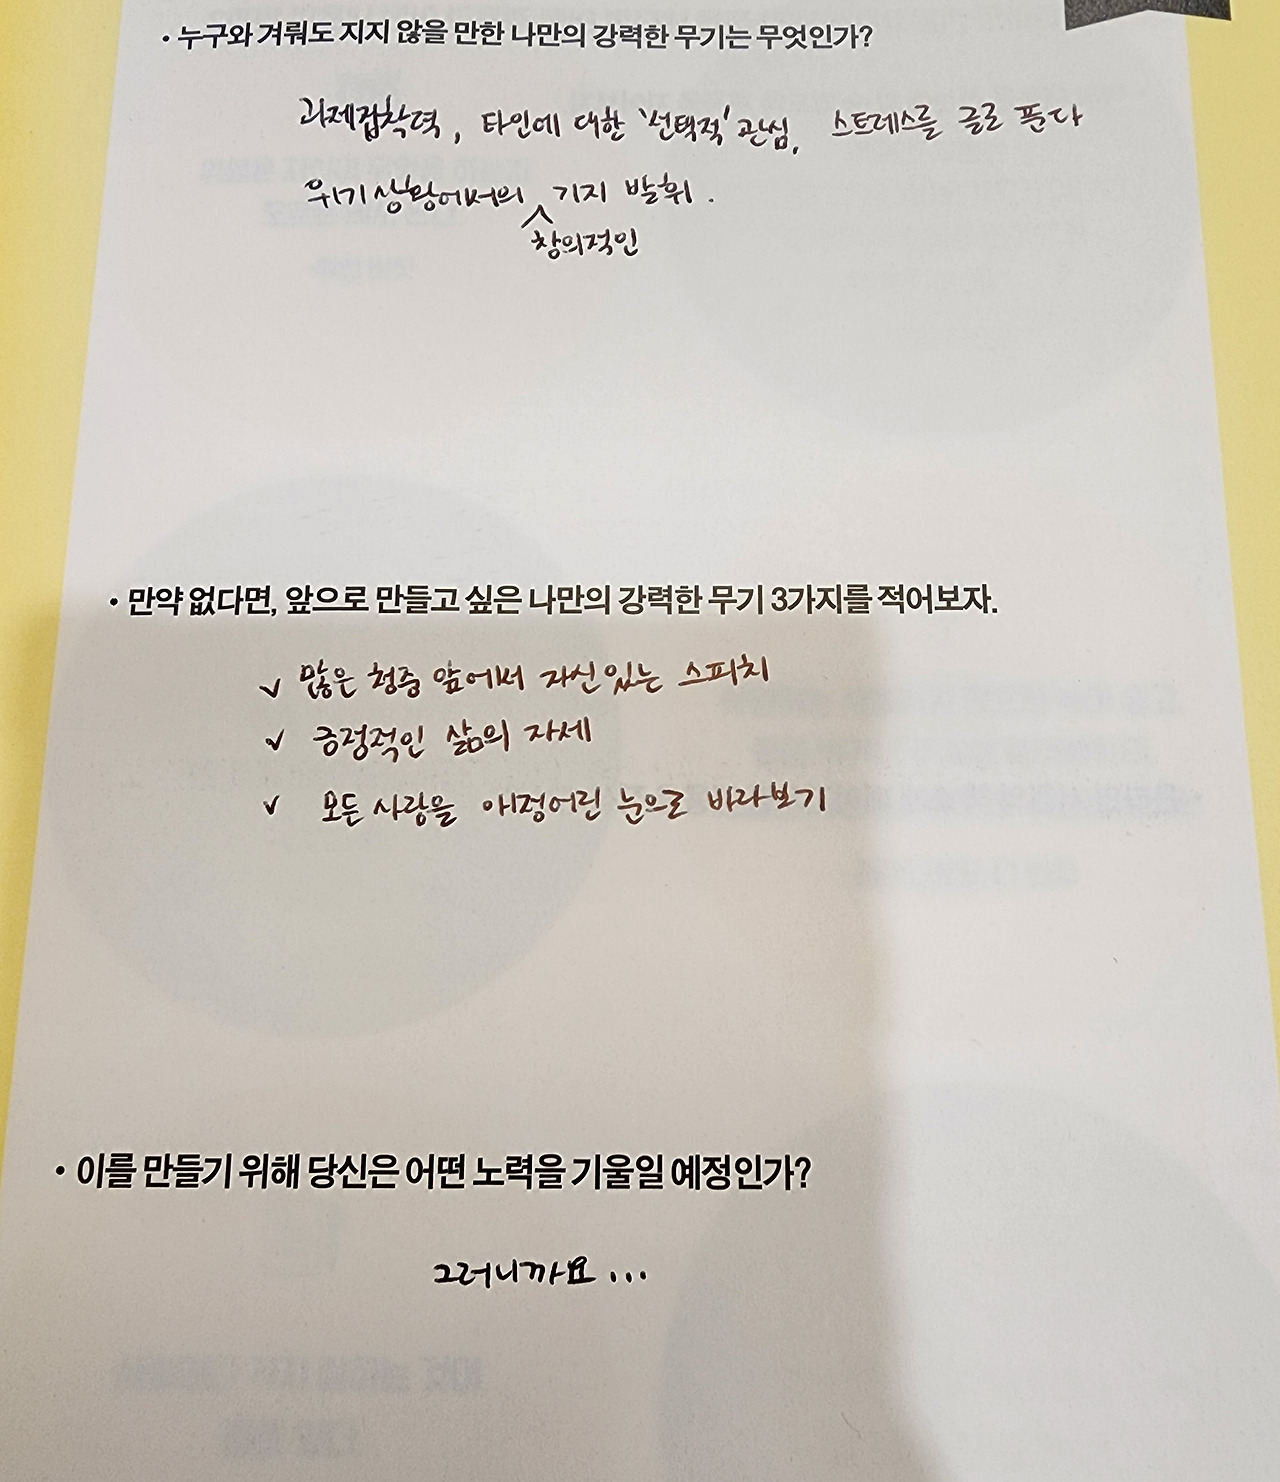 · 누구와 겨뤄도 지지 않을 만한 나만의 강력한 무기는 무엇인가?
과제집착력, 타인에 대한 '선택적' 관심, 스트레스를 글로 푼다
위기상황에서의 기지 발휘.
창의적인
· 만약 없다면, 앞으로 만들고 싶은 나만의 강력한 무기 3가지를 적어보자.
✓ 많은 청중 앞에서 자신있는 스피치
✓ 긍정적인 삶의 자세
✓ 모든 사람을 애정어린 눈으로 바라보기
· 이를 만들기 위해 당신은 어떤 노력을 기울일 예정인가?
그러니까요...